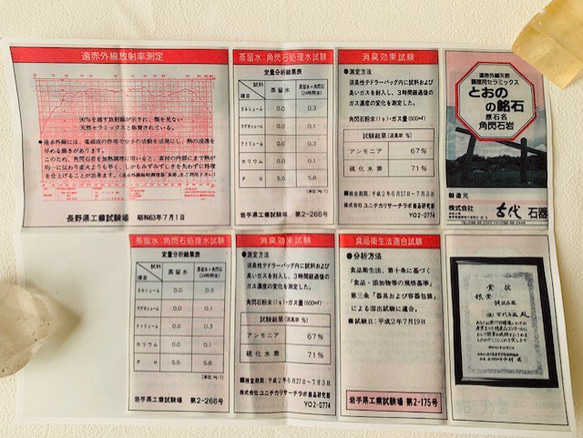 遠赤外線放射率測定
90%を越す放射線が示され、類を見ない
天然セラミックスと称賛されている。
●遠赤外線には、電磁波の作用で分子の活動を活発にし、熱の浸透を
早める働きがあります。
このため、角閃石を加熱調理に用いると、素材の内部にまで熱が
均一に伝わり
長野県工業試験場 昭和63年7月1日
蒸留水:角閃石処理水試験
定量分析結果表
試料
項目
蒸留水
蒸留水+角閃石
(24時間後)
カルシューム 0.0 0.3
マグネシューム 0.1 0.3
ナトリューム 0.0 0.3
カリウム 0.0 0.1
P H 5.5 5.8
岩手県工業試験場 第2-266号
消臭効果試験
●測定方法
消臭性テドラーバッグ内に試料および
臭いガスを封入し、3時間経過後の
ガス濃度の変化を測定した。
角閃石粉末(1g)・ガス量(600mℓ)
試験結果(消臭率 %)
アンモニア 67%
硫化水素 71%
●検査期間:平成2年6月27日〜7月3日
株式会社ユニチカリサーチラボ商品研究部
YO2-0774
遠赤外線天然
調理用セラミックス
とおの
の銘石
原石名
角閃石岩
製造元
株式会社 古代石器
蒸留水:角閃石処理水試験
定量分析結果表
試料
項目
蒸留水
蒸留水+角閃石
(24時間後)
カルシューム 0.0 0.3
マグネシューム 0.1 0.3
ナトリューム 0.0 0.3
カリウム 0.0 0.1
P H 5.5 5.8
岩手県工業試験場 第2-266号
消臭効果試験
●測定方法
消臭性テドラーバッグ内に試料および
臭いガスを封入し、3時間経過後の
ガス濃度の変化を測定した。
角閃石粉末(1g)・ガス量(600mℓ)
試験結果(消臭率 %)
アンモニア 67%
硫化水素 71%
●検査期間:平成2年6月27日〜7月3日
株式会社ユニチカリサーチラボ商品研究部
YO2-0774
食品衛生法適合試験
●分析方法
食品衛生法、第十条に基づく
「食品・添加物等の規格基準」
第三条「器具および容器包装」
による溶出試験に適合。
■試験日:平成2年7月19日
岩手県工業試験場 第2-175号
賞状